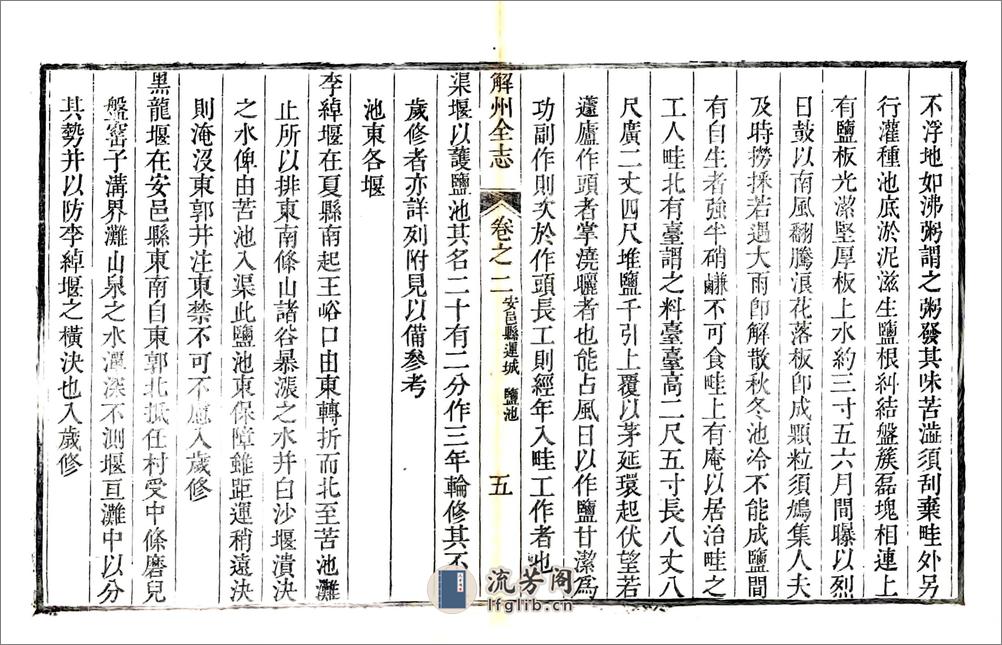 不浮地如沸粥謂之粥發其味苦澁須刮棄畦外另
行灌種池底淤泥滋生鹽根糾結盤簇磊塊相連上
有鹽板光潔堅厚板上水約三寸五六月間曝以烈
日鼓以南風翻騰浪花落板卽成顆粒須鳩集人夫
及時撈採若遇大雨卽解散秋冬池冷不能成鹽間
有自生者強半硝鹻不可食畦上有庵以居治畦之
工人畦北有臺謂之料臺臺高二尺五寸長八丈八
尺廣二丈四尺堆鹽千引上覆以茅延環起伏望若
蘧廬作頭者掌澆曬者也能占風日以作鹽甘潔爲
功副作則次於作頭長工則經年入畦工作者也
解州全志
卷之二
安邑縣運城 鹽池
五
渠堰以護鹽池其名二十有二分作三年輪修其不
歲修者亦詳列附見以備參考
池東各堰
李綽堰在夏縣南起王峪口由東轉折而北至苦池灘
止所以排東南條山諸谷暴漲之水并白沙堰潰決
之水俾由苦池入渠此鹽池東保障雖距運稍遠決
則淹沒東郭井注東禁不可不應入歲修
黑龍堰在安邑縣東南自東郭北抵任村受中條磨兒
盤窰子溝界灘山泉之水渾深不測堰亘灘中以分
其勢并以防李綽堰之橫決也入歲修
流芳阁
lfglib.cn